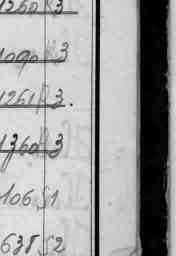 1260 R 3
1090 3
1261 R 3.
1360 3
106 S 1
638 S 2